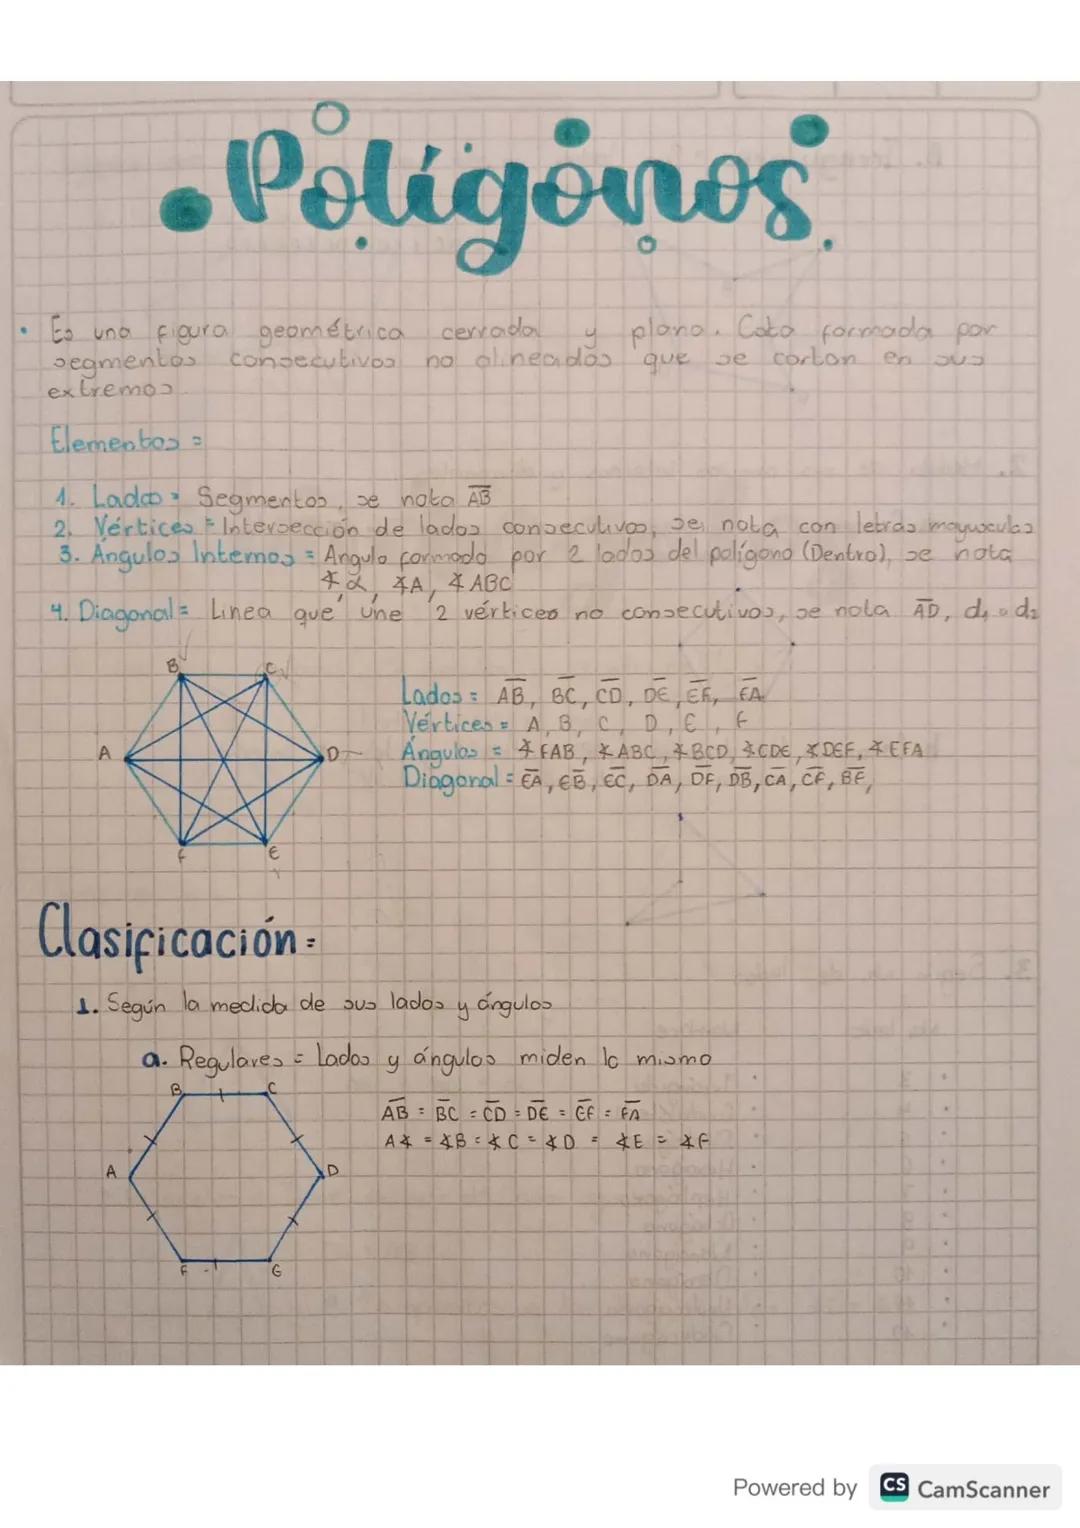 Polígonos
• Es una figura geométrica cerrada y plana. Esta formada por
segmentos consecutivos no alineados que se cortan en sus
extremos.
Elementos =
1. Lados = Segmentos, se nota A̅B̅
2. Vértices = Intersección de lados consecutivos, se nota con letras mayusculas
3. Ángulos Internos = Angulo formado por 2 lados del polígono (Dentro), se nota
∡α, ∡A, ∡ABC
4. Diagonal = Linea que une 2 vértices no consecutivos, se nota A̅D̅, d₁ o d₂
B C
A D
F E
Lados = A̅B̅, B̅C̅, C̅D̅, D̅E̅, E̅F̅, F̅A̅
Vértices = A, B, C, D, E, F
Ángulos = ∡FAB, ∡ABC, ∡BCD, ∡CDE, ∡DEF, ∡EFA
Diagonal = E̅A̅, E̅B̅, E̅C̅, D̅A̅, D̅F̅, D̅B̅, C̅A̅, C̅F̅, B̅F̅,
Clasificación =
1. Según la medida de sus lados y ángulos
a. Regulares = Lados y ángulos miden lo mismo
B C
A D
F G
A̅B̅ = B̅C̅ = C̅D̅ = D̅E̅ = E̅F̅ = F̅A̅
A∡ = ∡B = ∡C = ∡D = ∡E = ∡F
Powered by CS CamScanner